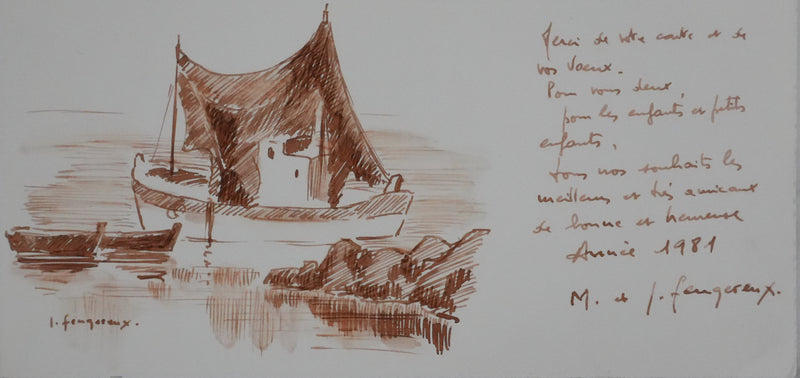 Merci de votre carte et de
vos Voeux.
Pour vous deux,
pour les enfants et petits
enfants,
tous nos souhaits les
meilleurs et très amicaux
de bonne et heureuse
Année 1981
M. et J. Fougereux.
J. Fougereux.